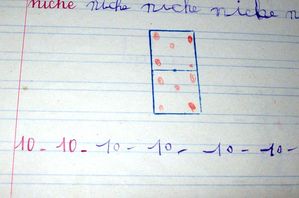 niche niche niche niche n
10 - 10 - 10 - 10 - 10 - 10 -